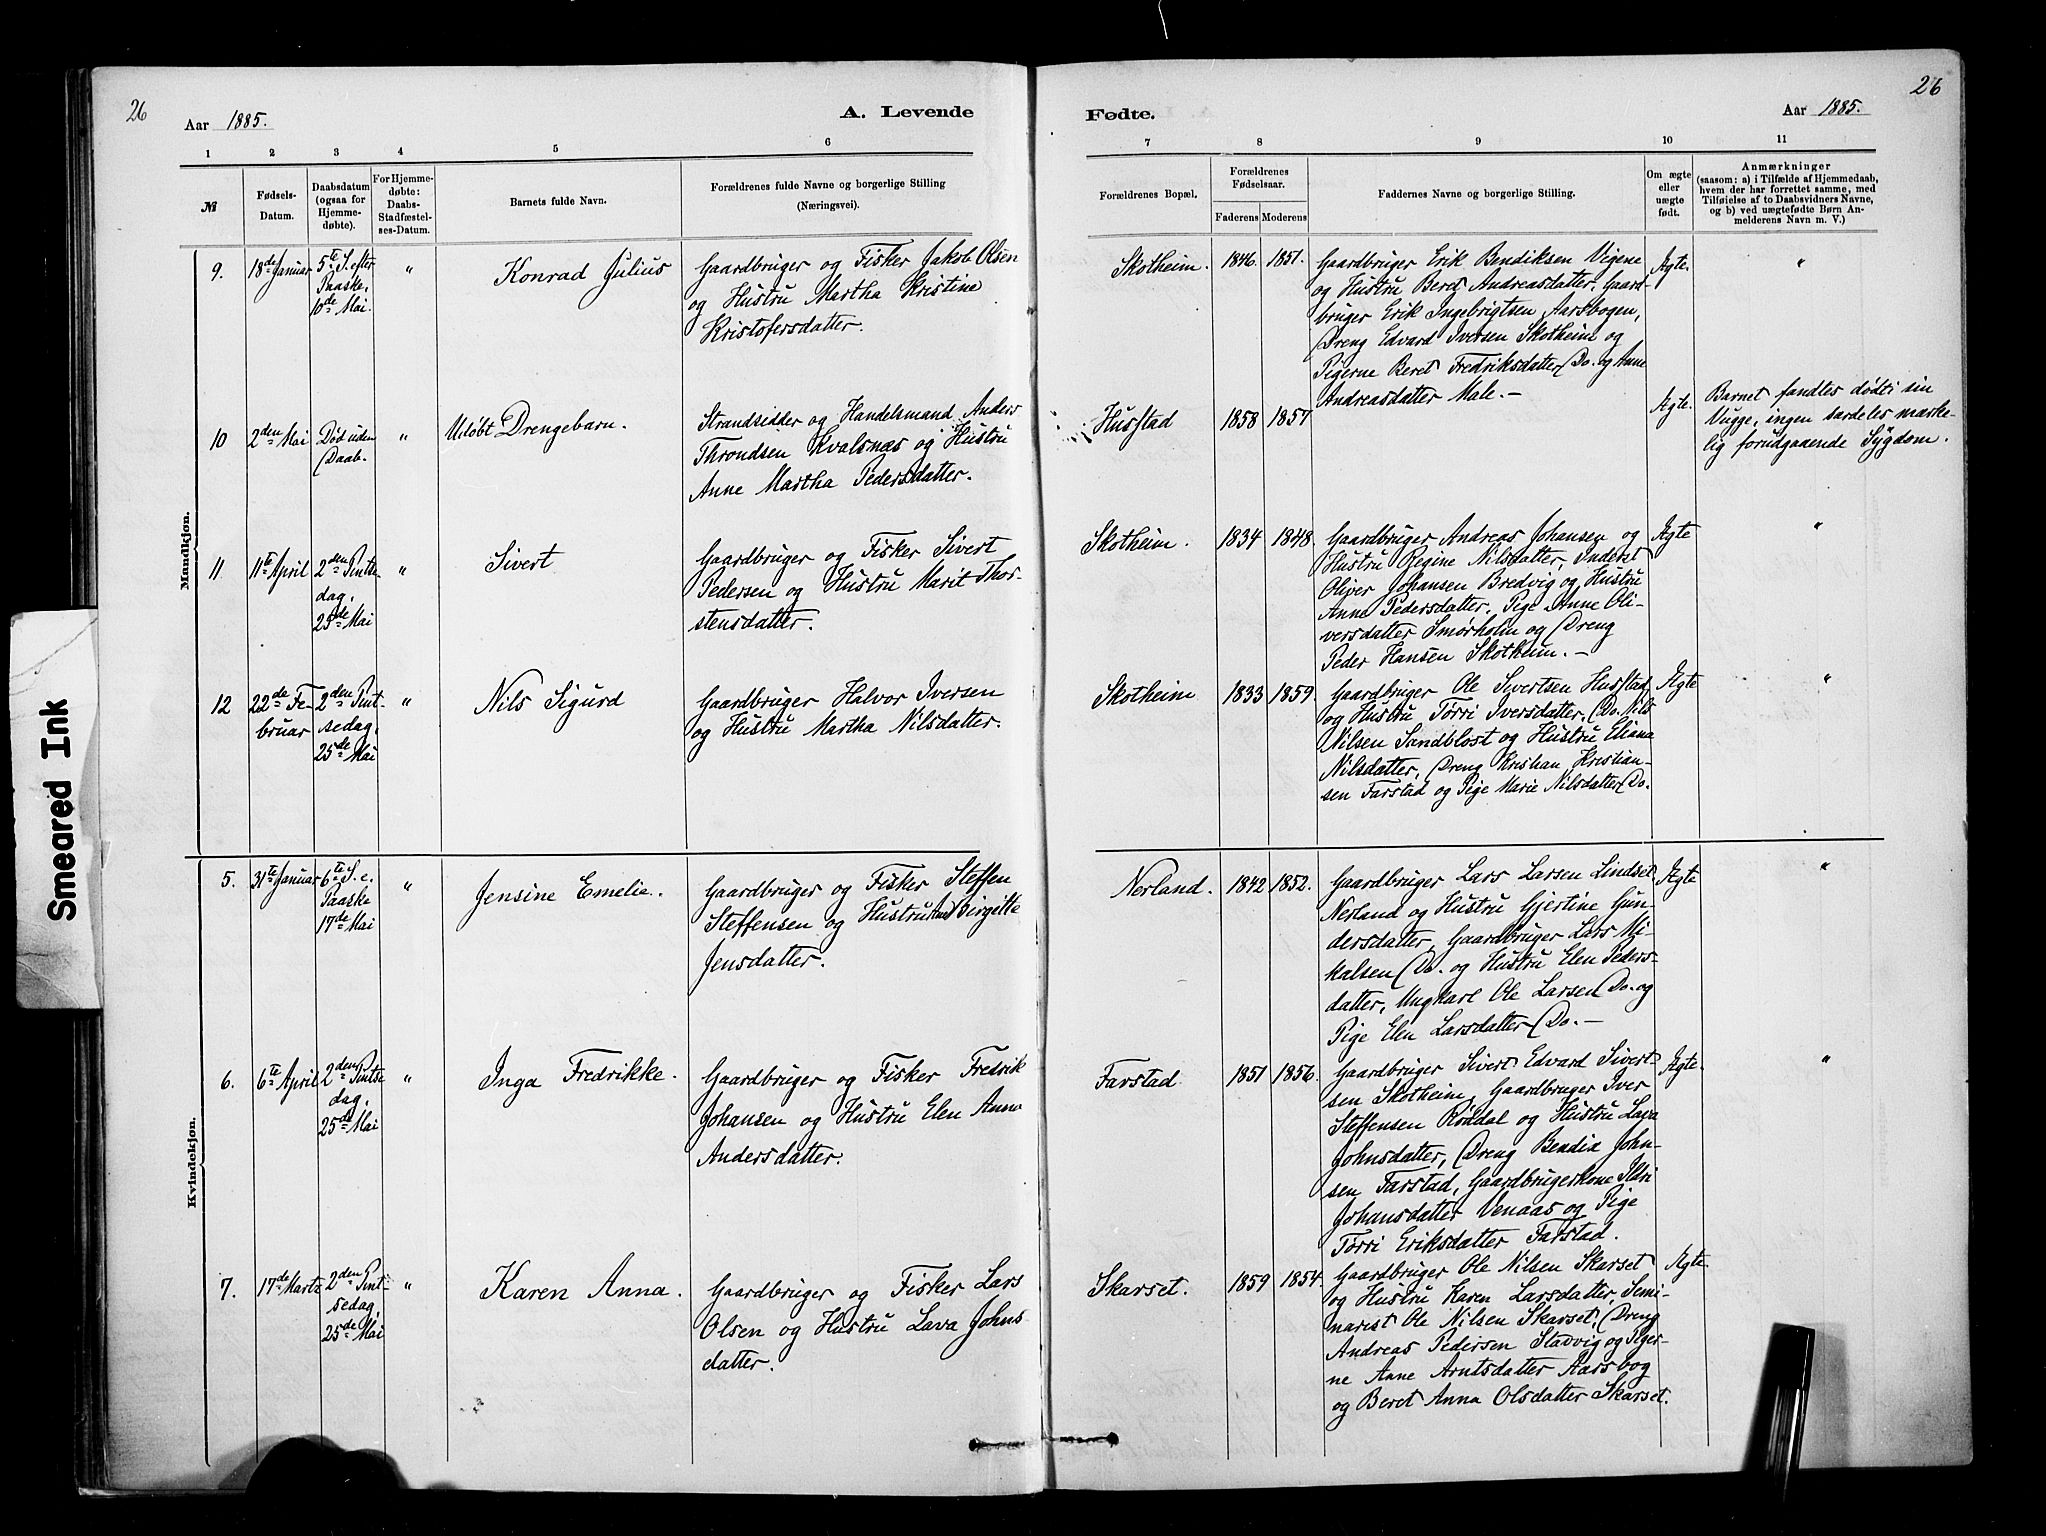 26
Aar 1885.
A. Levende
1 2 3 4 5 6
№
Fødsels-
Datum.
Daabsdatum
(ogsaa for
Hjemme-
døbte).
For Hjemme-
døbte:
Daabs-
Stadfæstel-
ses-Datum.
Barnets fulde Navn.
Forældrenes fulde Navne og borgerlige Stilling
(Næringsvei).
Mandkjøn.
9.
18de Januar
5te S. efter
Paaske,
10de Mai.
"
Konrad Julius
Gaardbruger og Fisker Jakob Olsen
og Hustru Martha Kristine
Kristofersdatter.
10
2den Mai
Død uden
Daab.
"
Udøbt Drengebarn.
Strandsidder og Handelsmand Anders
Throndsen Kvalsnæs og Hustru
Anne Martha Pedersdatter.
11
11te April
2den Pintse
dag,
25de Mai
"
Sivert
Gaardbruger og Fisker Sivert
Pedersen og Hustru Marit Thor-
stensdatter.
12
22de Fe-
bruar
2den Pint-
sedag,
25de Mai
"
Nils Sigurd
Gaardbruger Halvor Iversen
og Hustru Martha Nilsdatter.
Kvindekjøn.
5.
31te Januar
6te S. e.
Paaske
17de Mai
"
Jensine Emelie.
Gaardbruger og Fisker Steffen
Steffensen og Hustru Birgitte
Jensdatter.
6.
6te April
2den Pintse
dag,
25de Mai
"
Inga Fredrikke.
Gaardbruger og Fisker Fredrik
Johansen og Hustru Elen Anna
Andersdatter.
7.
17de Marts
2den Pint-
sedag,
25de Mai
"
Karen Anna.
Gaardbruger og Fisker Lars
Olsen og Hustru Lava Johns-
datter.
26
Fødte.
Aar 1885.
7 8 9 10 11
Forældrenes Bopæl.
Forældrenes
Fødselsaar.
Faderens Moderens
Faddernes Navne og borgerlige Stilling.
Om ægte
eller
uægte
født.
Anmærkninger
(saasom: a) i Tilfælde af Hjemmedaab,
hvem der har forrettet samme, med
Tilføielse af to Daabsvidners Navne,
og b) ved uægtefødte Børn An-
melderens Navn m. V.)
Skotheim.
1846. 1851.
Gaardbruger Erik Bendiksen Vigene
og Hustru Beret Andreasdatter, Gaard-
bruger Erik Ingebrigtsen Aarsbogen,
Dreng Edvard Iversen Skotheim og
Pigerne Beret Fredriksdatter Do. og Anne
Andreasdatter Male. —
Ægte.
"
Husstad
1858 1857
Ægte.
Barnet fandtes dødt i sin
Vugge, ingen særdeles mærke-
lig forudgaaende Sygdom.
Skotheim.
1834 1848
Gaardbruger Andreas Johansen og
Hustru Regine Nilsdatter, Inderst
Oliver Johansen Bredvig og Hustru
Anne Pedersdatter, Pige Anne Oli-
versdatter Smørholm og Dreng
Peder Hansen Skotheim. —
Ægte
"
Skotheim
1833 1859.
Gaardbruger Ole Sivertsen Husstad
og Hustru Tørri Iversdatter, Do. Nils
Nilsen Sandblost og Hustru Eliana
Nilsdatter, Dreng Kristian Kristian-
sen Farstad og Pige Marie Nilsdatter Do.
Ægte
"
Nerland.
1842 1852.
Gaardbruger Lars Larsen Lindset
Nerland og Hustru Gjertine Gun-
dersdatter, Gaardbruger Lars Mi-
kalsen Do. og Hustru Elen Peders-
datter, Ungkarl Ole Larsen Do. og
Pige Elen Larsdatter Do. —
Ægte
"
Farstad.
1851 1856.
Gaardbruger Sivert Edvard Sivert-
sen Skotheim, Gaardbruger Iver
Steffensen Røddal og Hustru Lava
Johnsdatter, Dreng Bendix John-
sen Farstad, Gaardbrugerkone Ildri
Johansdatter Venaas og Pige
Tørri Eriksdatter Farstad.
Ægte.
"
Skarset.
1859 1854.
Gaardbruger Ole Nilsen Skarset
og Hustru Karen Larsdatter, Semi-
narist Ole Nilsen Skarset, Dreng
Andreas Pedersen Stadvig og Piger-
ne Anne Arntsdatter Aarsbog
og Beret Anna Olsdatter Skarset.
Ægte.
Smeared Ink